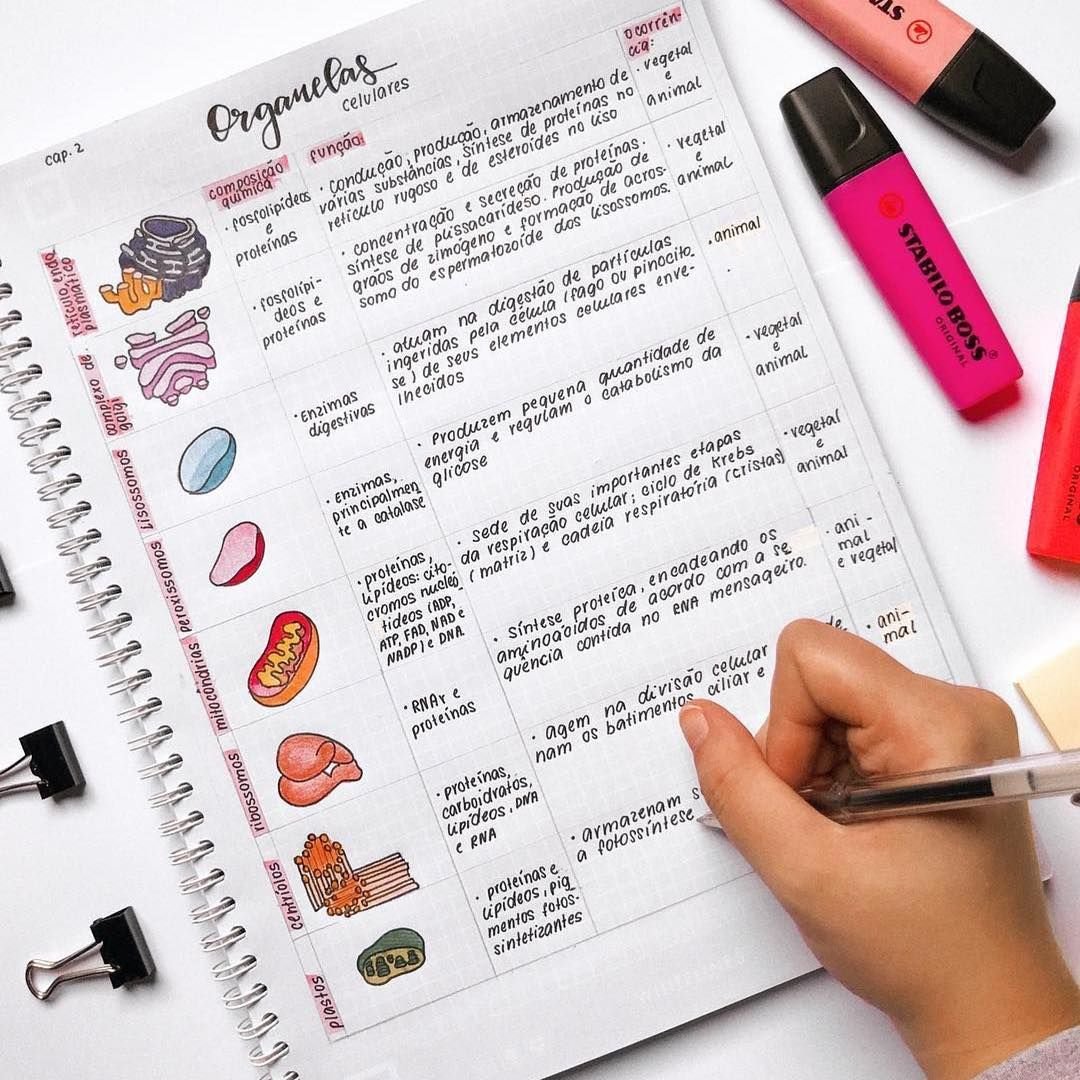 cap. 2
Organelas
celulares
composição
química
função:
ocorrên-
cia:
retículo endo
plasmático
· fosfolipídeos
e
proteínas
· condução, produção, armazenamento de
várias substâncias, síntese de proteínas no
retículo rugoso e de esteroides no liso
· vegetal
e
animal
complexo de
golgi
· fosfolipí-
deos e
proteínas
· concentração e secreção de proteínas.
síntese de polissacarídeso. Produção de
grãos de zimogeno e formação de acros-
somo do espermatozoide dos lisossomos.
· vegetal
e
animal
lisossomos
· Enzimas
digestivas
· atuam na digestão de partículas
ingeridas pela célula (fago ou pinocito
se) de seus elementos celulares enve-
lhecidos
· animal
peroxissomos
· Enzimas,
principalmen
te a catalase
· Produzem pequena quantidade de
energia e regulam o catabolismo da
glicose
· vegetal
e
animal
mitocôndrias
· proteínas,
lipídeos: cito-
cromos nucleó
tideos (ADP,
ATP, FAD, NAD e
NADP) e DNA
· sede de suas importantes etapas
da respiração celular; ciclo de Krebs
(matriz) e cadeia respiratória (cristas)
· vegetal
e
animal
ribossomos
· RNAr e
proteínas
· síntese proteíca, encadeando os
aminoácidos de acordo com a se
quência contida no RNA mensageiro.
· ani-
mal
e vegetal
centríolos
· proteínas,
carboidratos,
lipídeos, DNA
e RNA
· agem na divisão celular
nam os batimentos ciliar e
· ani-
mal
plastos
· proteínas e
lipídeos, pig
mentos fotos-
sintetizantes
· armazenam
a fotossíntese
STABILO BOSS
ORIGINAL
STA
ORIGINAL